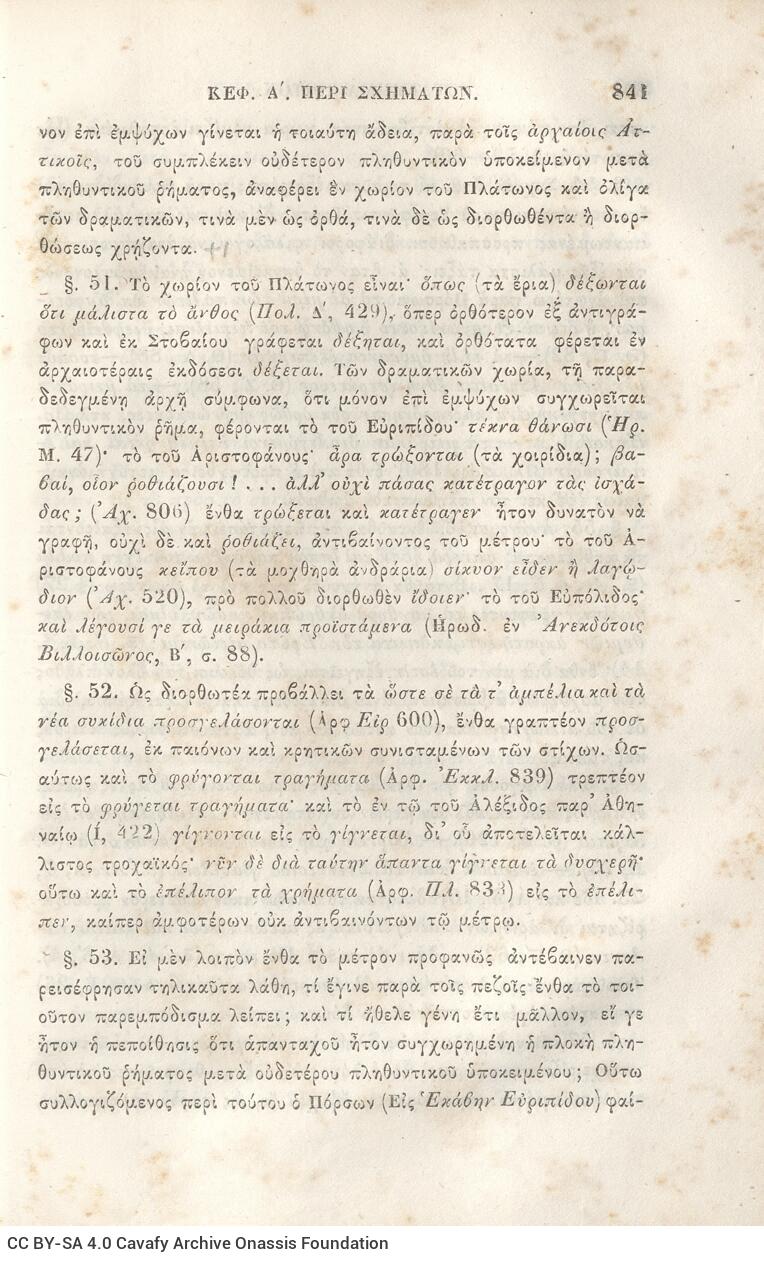 ΚΕΦ. Α΄. ΠΕΡΙ ΣΧΗΜΑΤΩΝ. 841
νον ἐπὶ ἐμψύχων γίνεται ἡ τοιαύτη ἄδεια, παρὰ τοῖς ἀρχαίοις Ἀτ-
τικοῖς, τοῦ συμπλέκειν οὐδέτερον πληθυντικὸν ὑποκείμενον μετὰ
πληθυντικοῦ ῥήματος, ἀναφέρει ἓν χωρίον τοῦ Πλάτωνος καὶ ὀλίγα
τῶν δραματικῶν, τινὰ μὲν ὡς ὀρθά, τινὰ δὲ ὡς διορθωθέντα ἢ διορ-
θώσεως χρῄζοντα.
§. 51. Τὸ χωρίον τοῦ Πλάτωνος εἶναι· ὅπως (τὰ ἔρια) δέξωνται
ὅτι μάλιστα τὸ ἄνθος (Πολ. Δ΄, 429), ὅπερ ὀρθότερον ἐξ ἀντιγρά-
φων καὶ ἐκ Στοβαίου γράφεται δέξηται, καὶ ὀρθότατα φέρεται ἐν
ἀρχαιοτέραις ἐκδόσεσι δέξεται. Τῶν δραματικῶν χωρία, τῇ παρα-
δεδεγμένῃ ἀρχῇ σύμφωνα, ὅτι μόνον ἐπὶ ἐμψύχων συγχωρεῖται
πληθυντικὸν ῥῆμα, φέρονται τὸ τοῦ Εὐριπίδου· τέκνα θάνωσι (Ἡρ.
Μ. 47)· τὸ τοῦ Ἀριστοφάνους· ἆρα τρώξονται (τὰ χοιρίδια); βα-
βαί, οἷον ῥοθιάζουσι! . . . ἀλλ' οὐχὶ πάσας κατέτραγον τὰς ἰσχά-
δας; (Ἀχ. 806) ἔνθα τρώξεται καὶ κατέτραγεν ἦτον δυνατὸν νὰ
γραφῇ, οὐχὶ δὲ καὶ ῥοθιάζει, ἀντιβαίνοντος τοῦ μέτρου· τὸ τοῦ Ἀ-
ριστοφάνους κεἴπου (τὰ μοχθηρὰ ἀνδράρια) σίκυον εἶδεν ἢ λαγῴ-
διον (Ἀχ. 520), πρὸ πολλοῦ διορθωθὲν ἴδοιεν· τὸ τοῦ Εὐπόλιδος·
καὶ λέγουσί γε τὰ μειράκια προϊστάμενα (Ἡρωδ. ἐν Ἀνεκδότοις
Βιλλοισῶνος, Β΄, σ. 88).
§. 52. Ὡς διορθωτέα προβάλλει τὰ ὥστε σὲ τὰ τ' ἀμπέλια καὶ τὰ
νέα συκίδια προσγελάσονται (Ἀρφ Εἰρ 600), ἔνθα γραπτέον προσ-
γελάσεται, ἐκ παιόνων καὶ κρητικῶν συνισταμένων τῶν στίχων. Ὡσ-
αύτως καὶ τὸ φρύγονται τραγήματα (Ἀρφ. Ἐκκλ. 839) τρεπτέον
εἰς τὸ φρύγεται τραγήματα· καὶ τὸ ἐν τῷ τοῦ Ἀλέξιδος παρ' Ἀθη-
ναίῳ (Ι, 422) γίγνονται εἰς τὸ γίγνεται, δι' οὗ ἀποτελεῖται κάλ-
λιστος τροχαϊκός· νῦν δὲ διὰ ταύτην ἅπαντα γίγνεται τὰ δυσχερῆ·
οὕτω καὶ τὸ ἐπέλιπον τὰ χρήματα (Ἀρφ. Πλ. 833) εἰς τὸ ἐπέλι-
πεν, καίπερ ἀμφοτέρων οὐκ ἀντιβαινόντων τῷ μέτρῳ.
§. 53. Εἰ μὲν λοιπὸν ἔνθα τὸ μέτρον προφανῶς ἀντέβαινεν πα-
ρεισέφρησαν τηλικαῦτα λάθη, τί ἔγινε παρὰ τοῖς πεζοῖς ἔνθα τὸ τοι-
οῦτον παρεμπόδισμα λείπει; καὶ τί ἤθελε γένῃ ἔτι μᾶλλον, εἴ γε
ἦτον ἡ πεποίθησις ὅτι ἁπανταχοῦ ἦτον συγχωρημένη ἡ πλοκὴ πλη-
θυντικοῦ ῥήματος μετὰ οὐδετέρου πληθυντικοῦ ὑποκειμένου; Οὕτω
συλλογιζόμενος περὶ τούτου ὁ Πόρσων (Εἰς Ἑκάβην Εὐριπίδου) φαί-
CC BY-SA 4.0 Cavafy Archive Onassis Foundation